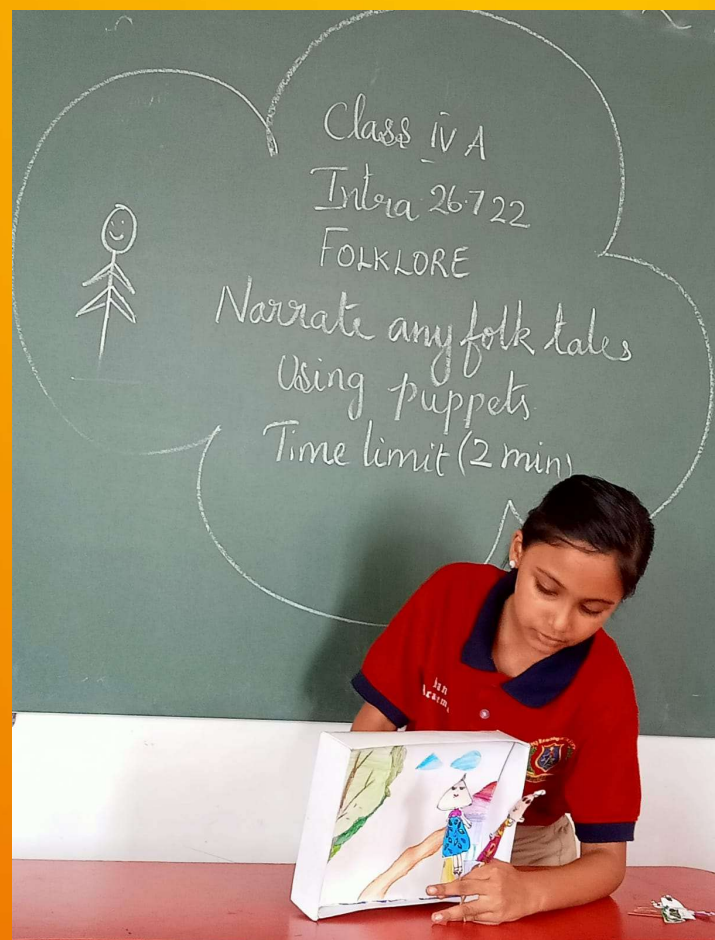 Class IV A
Intra 26.7.22
FOLKLORE
Narrate any folk tales
Using puppets
Time limit (2 min)